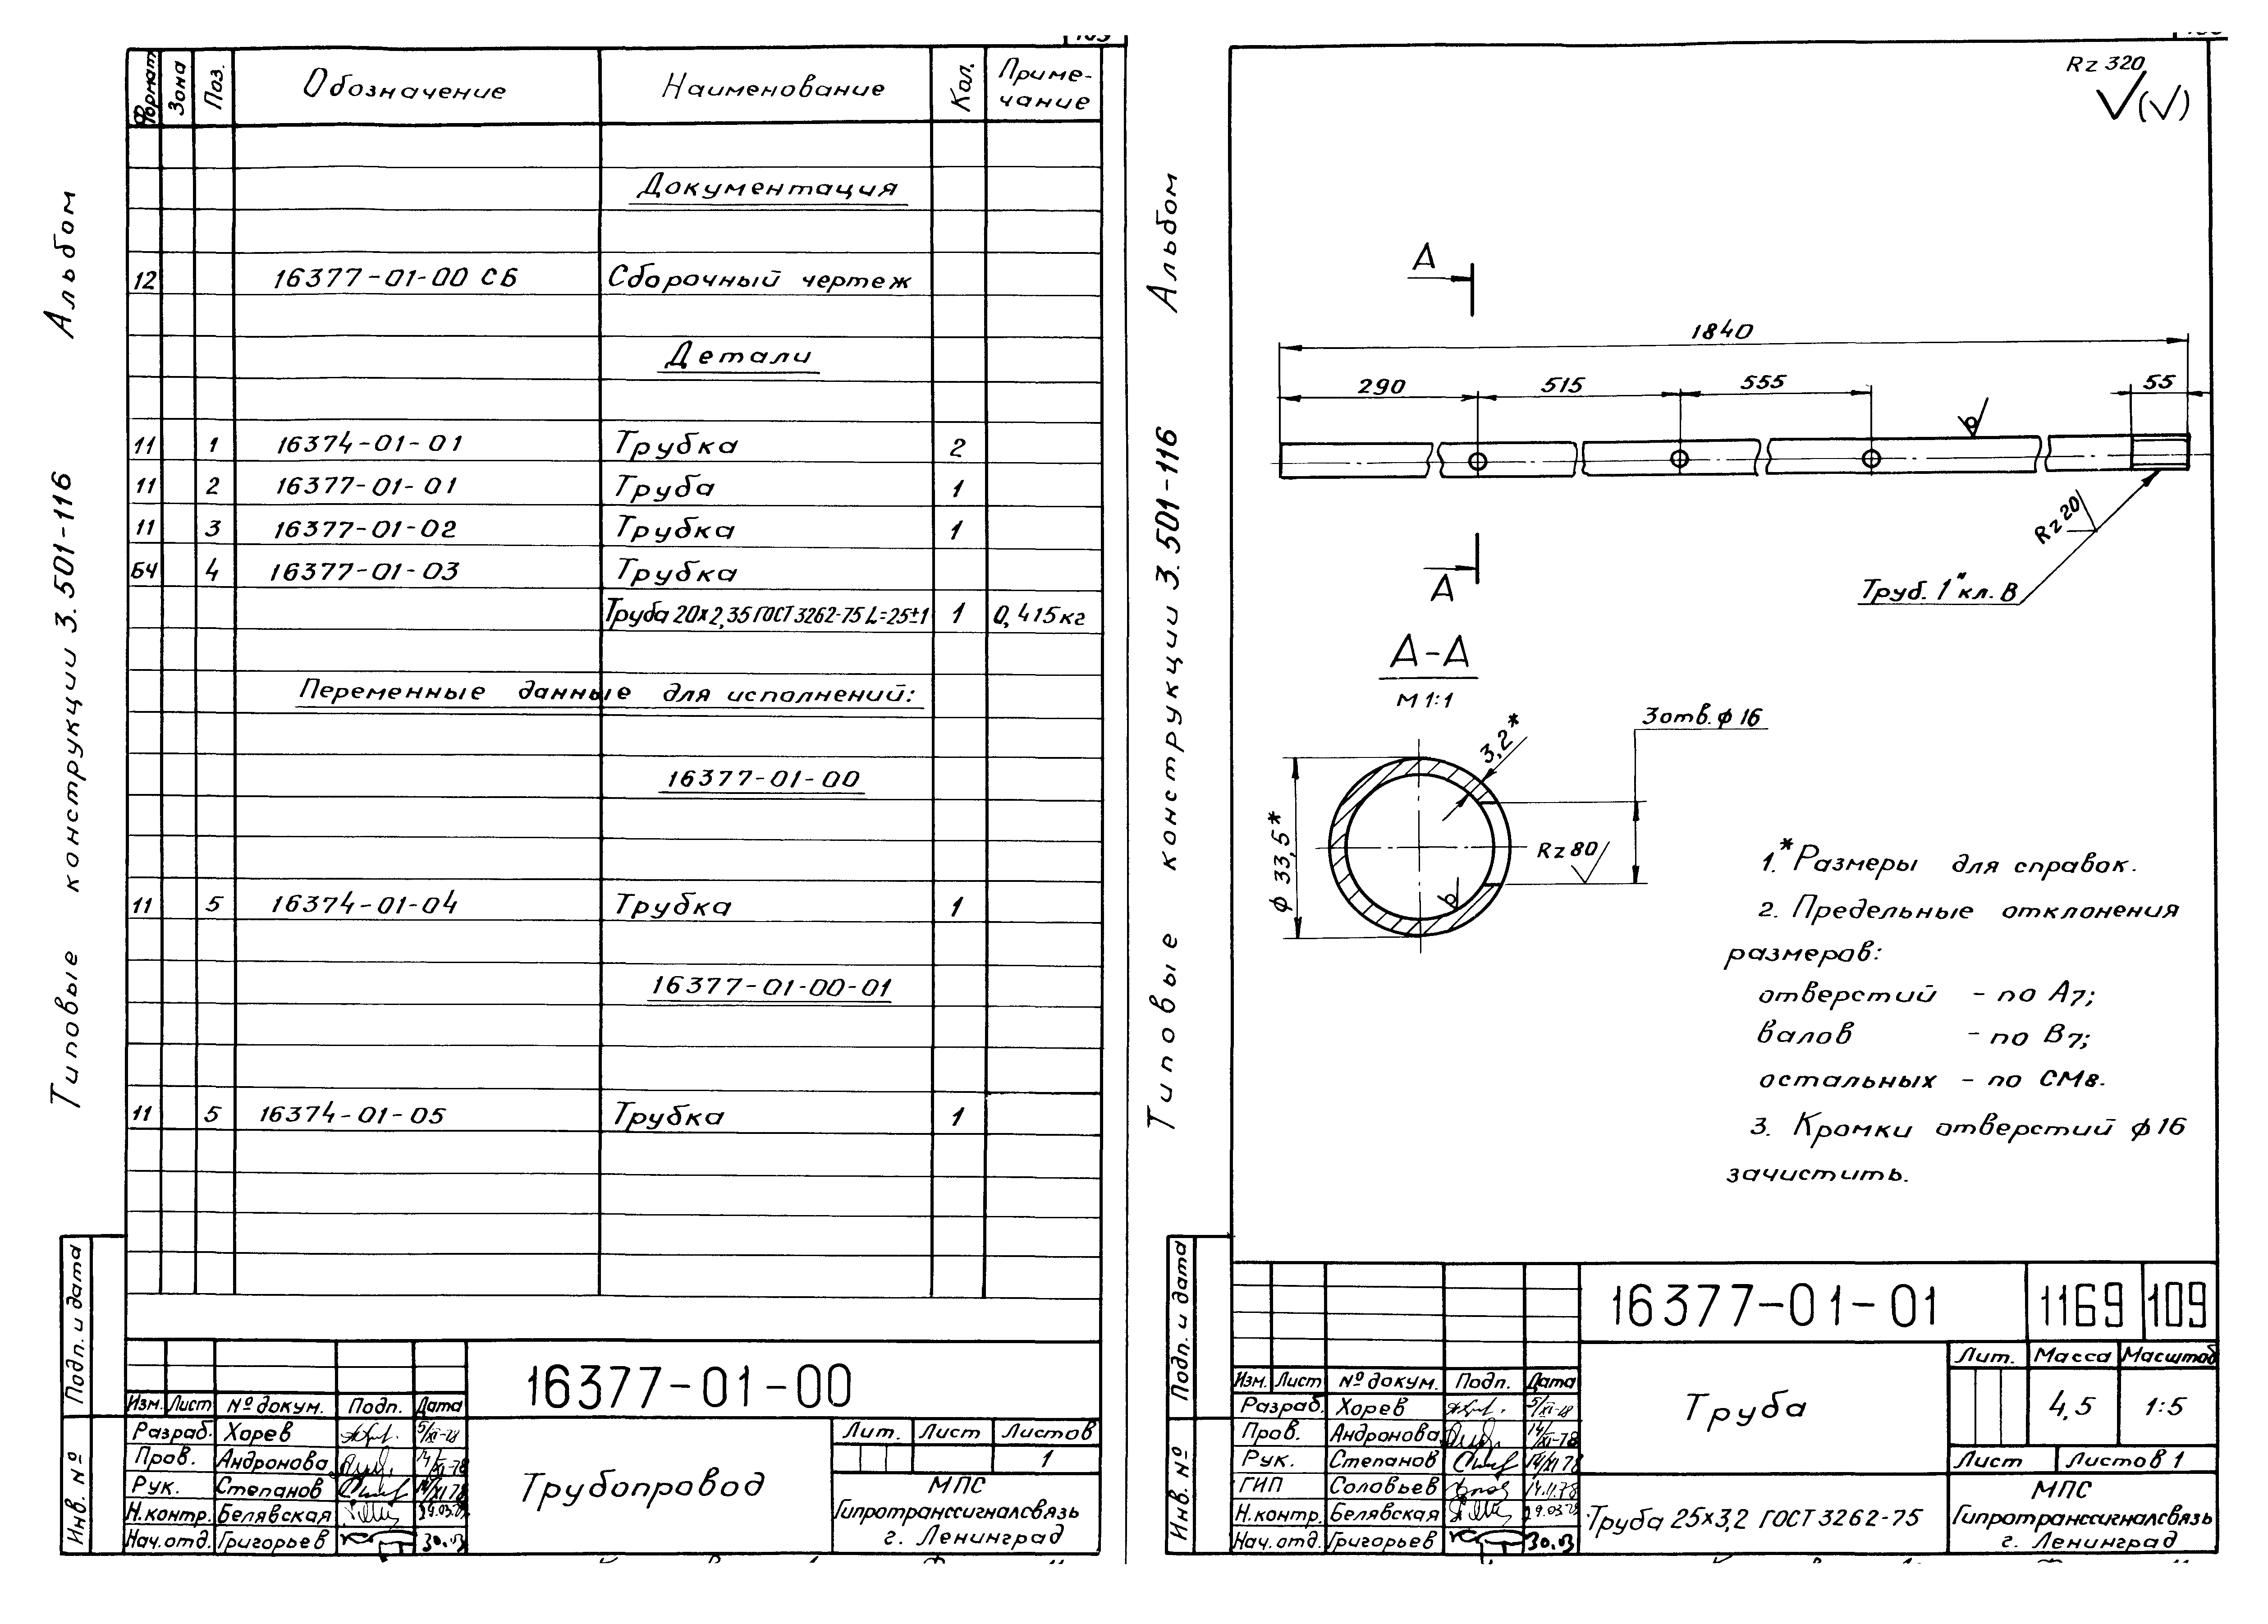 Формат Зона Поз. Обозначение Наименование Кол. Приме-
чание
Документация
12 16377-01-00 СБ Сборочный чертеж
Детали
11 1 16374-01-01 Трубка 2
11 2 16377-01-01 Труба 1
11 3 16377-01-02 Трубка 1
БЧ 4 16377-01-03 Трубка
Труба 20х2,35 ГОСТ 3262-75 L=25±1 1 0,415кг
Переменные данные для исполнений:
16377-01-00
11 5 16374-01-04 Трубка 1
16377-01-00-01
11 5 16374-01-05 Трубка 1
Типовые конструкции 3.501-116 Альбом
Подп. и дата
Инв. №
16377-01-00
Изм. Лист № докум. Подп. Дата
Разраб. Хорев
Пров. Андронова
Рук. Степанов
Н.контр. Белявская
Нач.отд. Григорьев 30.03
Трубопровод
Лит. Лист Листов
1
МПС
Гипротранссигналсвязь
г. Ленинград
Типовые конструкции 3.501-116 Альбом
Rz 320
(√)
А
1840
290 515 555 55
Rz 20
Труб. 1" кл. В
А
А-А
М 1:1
3,2*
3 отв. ф 16
ф 33,5*
Rz 80
1.* Размеры для справок.
2. Предельные отклонения
размеров:
отверстий - по А7;
валов - по В7;
остальных - по СМ8.
3. Кромки отверстий ф 16
зачистить.
Подп. и дата
Инв. №
16377-01-01 1169 109
Изм. Лист № докум. Подп. Дата
Разраб. Хорев
Пров. Андронова
Рук. Степанов
ГИП Соловьев
Н.контр. Белявская
Нач.отд. Григорьев 30.03
Труба
Лит. Масса Масштаб
4,5 1:5
Лист Листов 1
Труба 25х3,2 ГОСТ 3262-75
МПС
Гипротранссигналсвязь
г. Ленинград